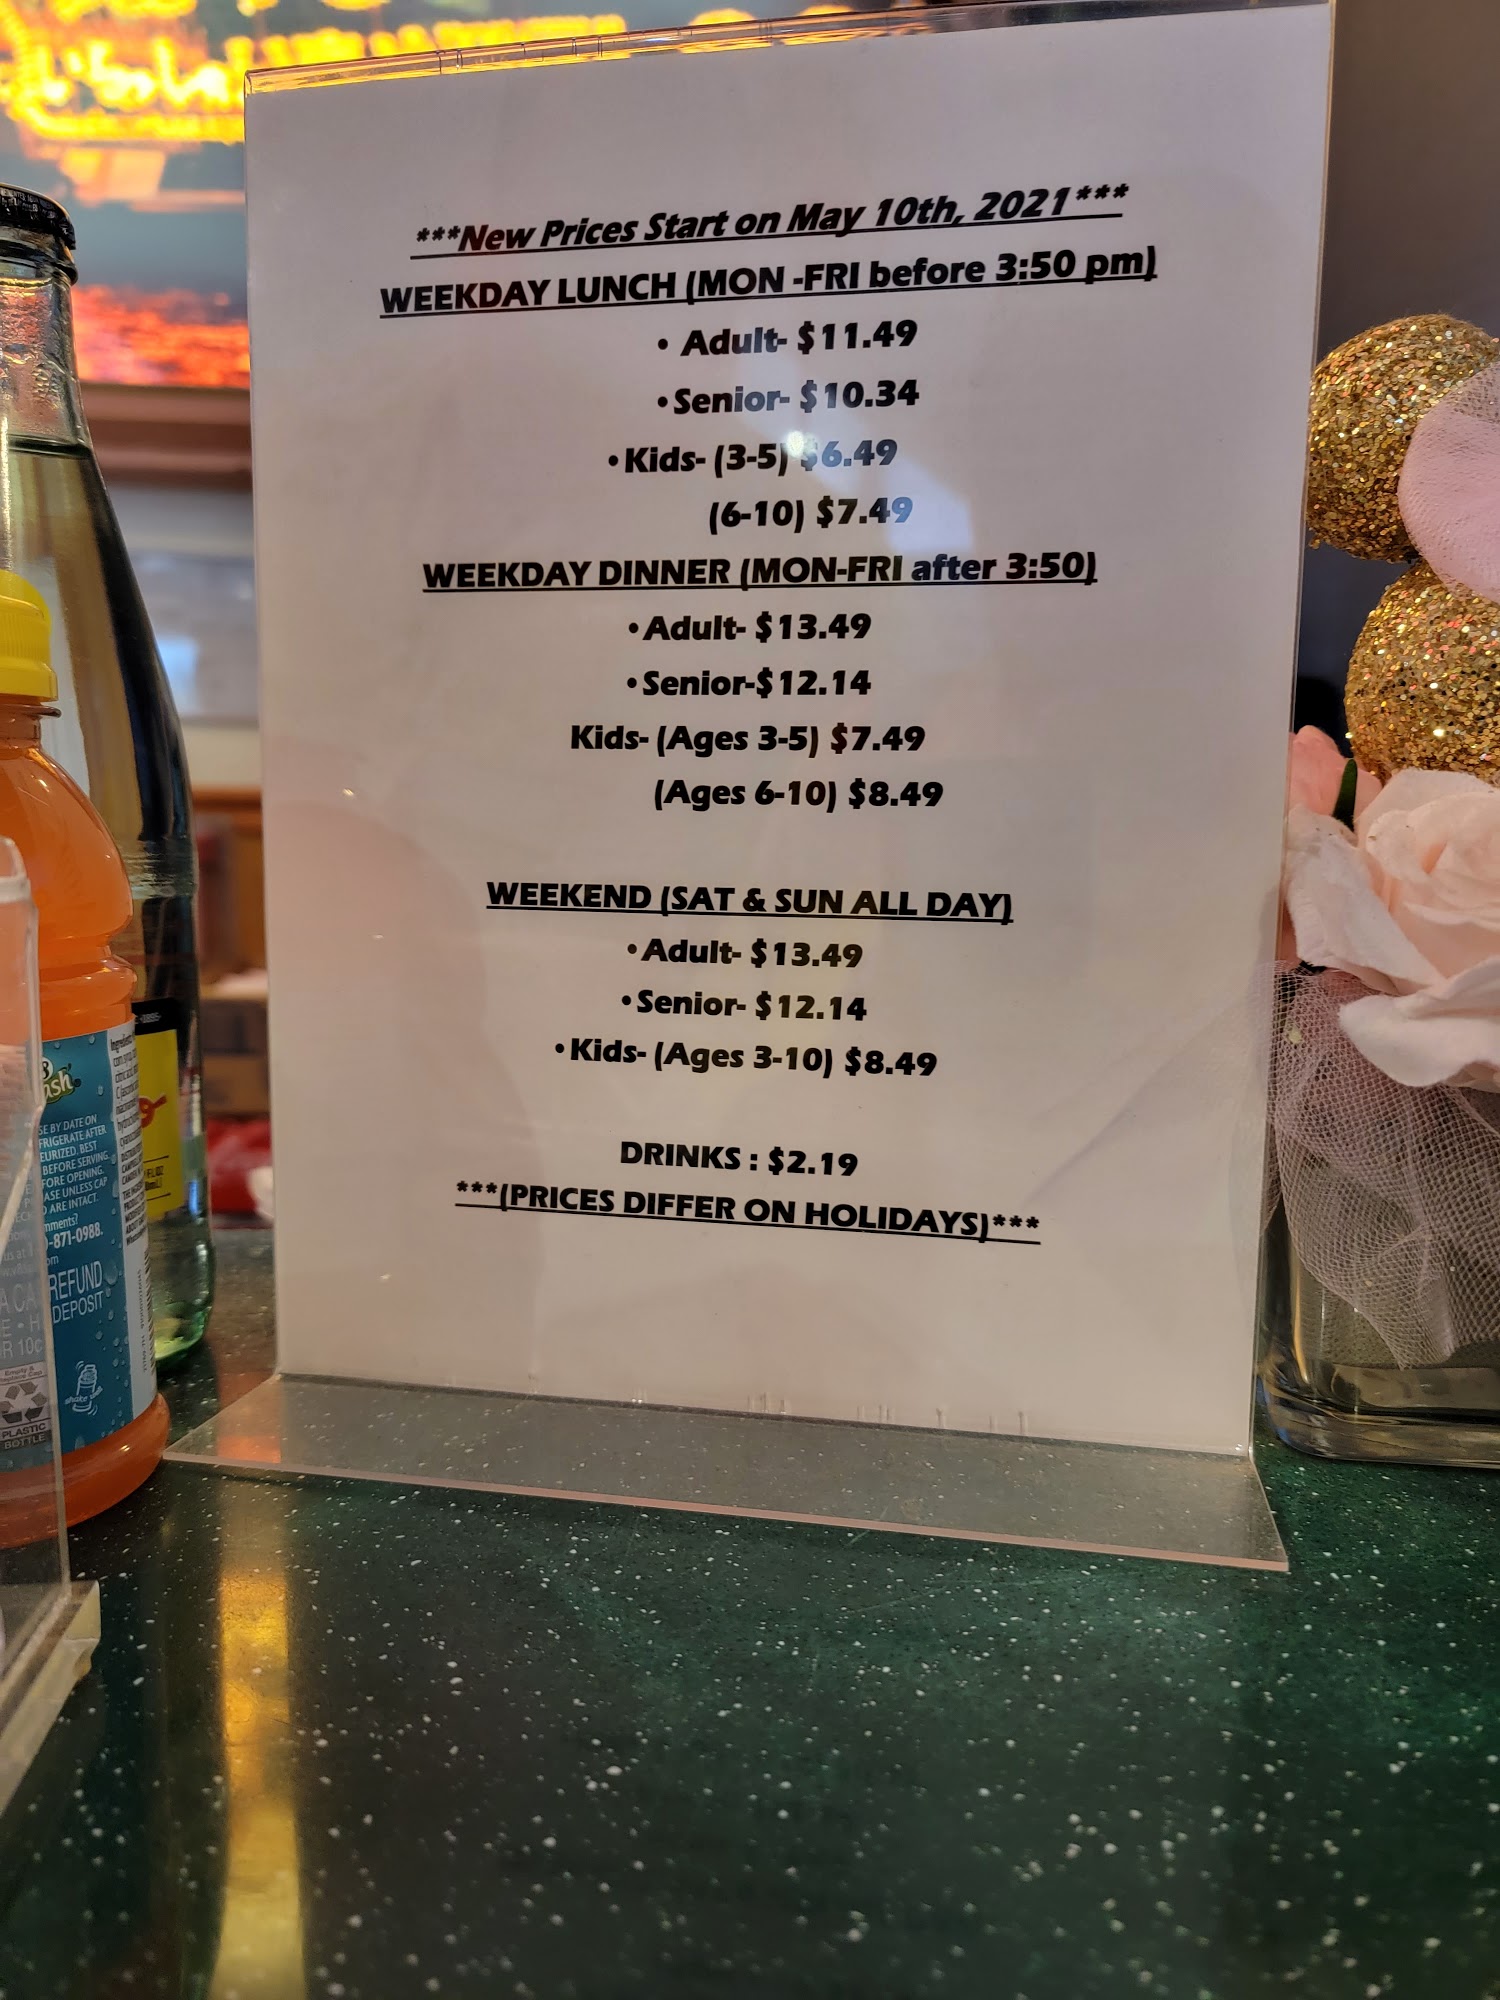 ***New Prices Start on May 10th, 2021***
WEEKDAY LUNCH (MON -FRI before 3:50 pm)
• Adult- $11.49
•Senior- $10.34
•Kids- (3-5) $6.49
(6-10) $7.49
WEEKDAY DINNER (MON-FRI after 3:50)
•Adult- $13.49
•Senior-$12.14
Kids- (Ages 3-5) $7.49
(Ages 6-10) $8.49
WEEKEND (SAT & SUN ALL DAY)
•Adult- $13.49
•Senior- $12.14
•Kids- (Ages 3-10) $8.49
DRINKS : $2.19
***(PRICES DIFFER ON HOLIDAYS)***
BY DATE ON
AFTER
BEST
BEFORE SERVING.
OPENING.
UNLESS CAP
ARE INTACT.
-871-0988.
REFUND
DEPOSIT
PLASTIC
BOTTLE